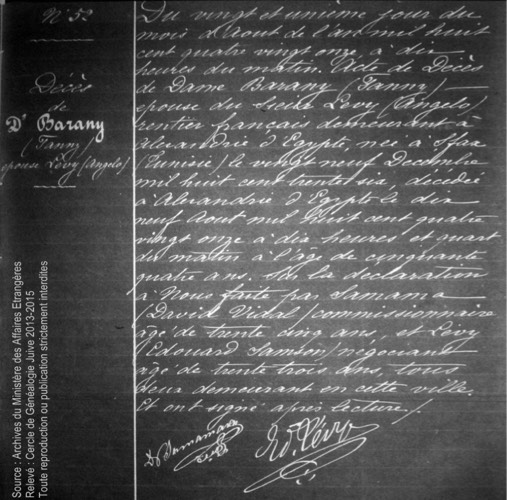 N° 52
Décès
de
De Barany
(Fanny)
epouse Lévy (Angelo)
Du vingt et unième jour du
mois d'Aout de l'an mil huit
cent quatre vingt onze, à dix
heures du matin. Acte de Décès
de Dame Barany (Fanny)
epouse du sieur Lévy (Angelo)
rentier français demeurant à
Alexandrie d'Egypte, née à Sfax
(Tunisie) le vingt neuf Decembre
mil huit cent trente six, décédée
à Alexandrie d'Egypte le dix
neuf Aout mil huit cent quatre
vingt onze à dix heures et quart
du matin à l'âge de cinquante
quatre ans. Sur la declaration
à Nous faite par Samama
(David Vidal) commissionnaire
agé de trente cinq ans et Lévy
(Edouard Samson) négociant
agé de trente trois ans, tous
deux demeurant en cette ville.
Et ont signé après lecture /.
D. Samama
Ed. Lévy
Source : Archives du Ministère des Affaires Etrangères
Relevé : Cercle de Généalogie Juive 2013-2015
Toute reproduction ou publication strictement interdites